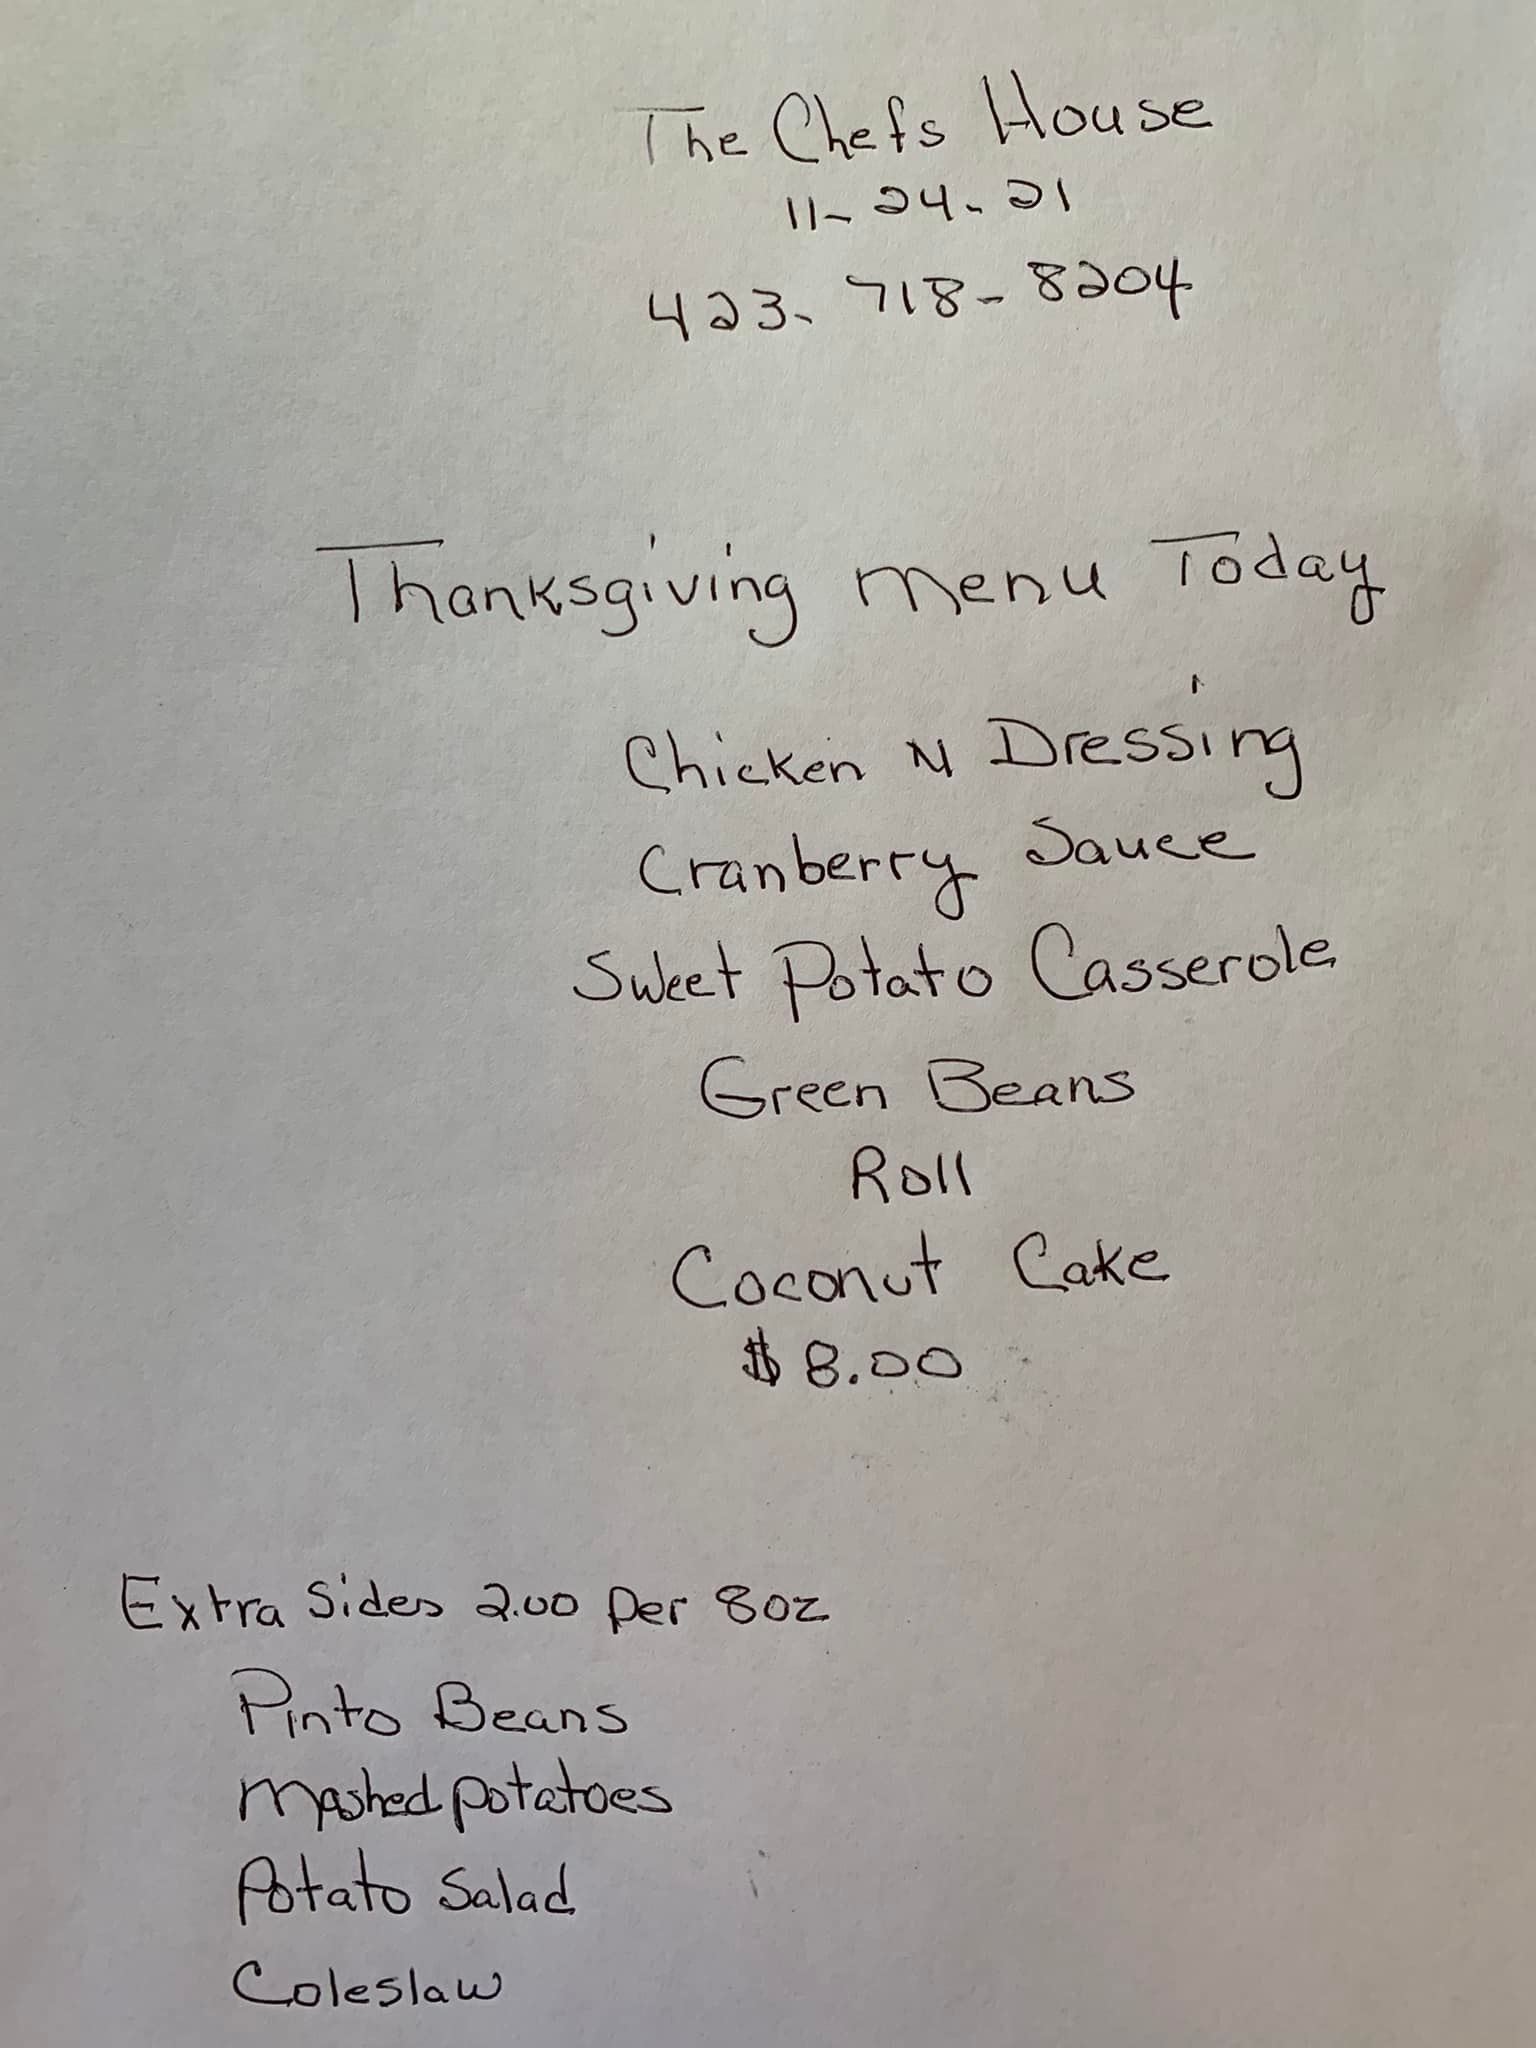 The Chefs House
11-24-21
423-718-8204
Thanksgiving Menu Today
Chicken N Dressing
Cranberry Sauce
Sweet Potato Casserole
Green Beans
Roll
Coconut Cake
$8.00
Extra Sides 2.00 Per 8oz
Pinto Beans
Mashed potatoes
Potato Salad
Coleslaw